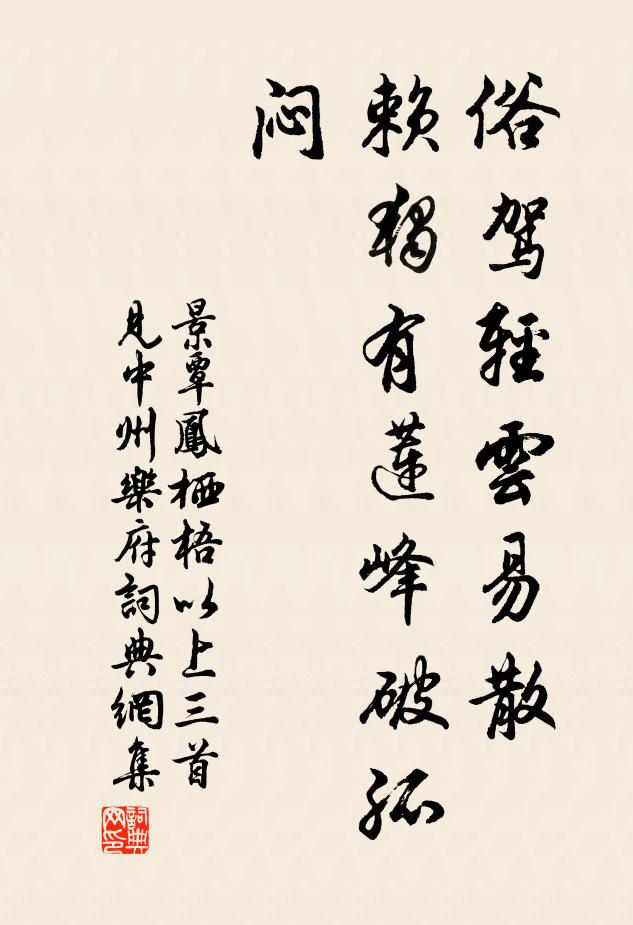 俗駕輕雲易散
賴独有蓮峰破孤
闷
景覃鳳栖梧以上三首
見中州樂府詞典網集
詞典网印